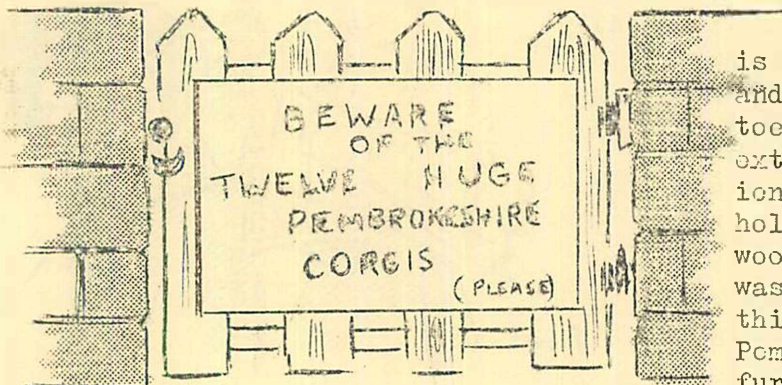 BEWARE
OF THE
TWELVE HUGE
PEMBROKESHIRE
CORGIS
(PLEASE)
is
and
toc
ext
ion
hol
woo
was
thi
Pem
fur